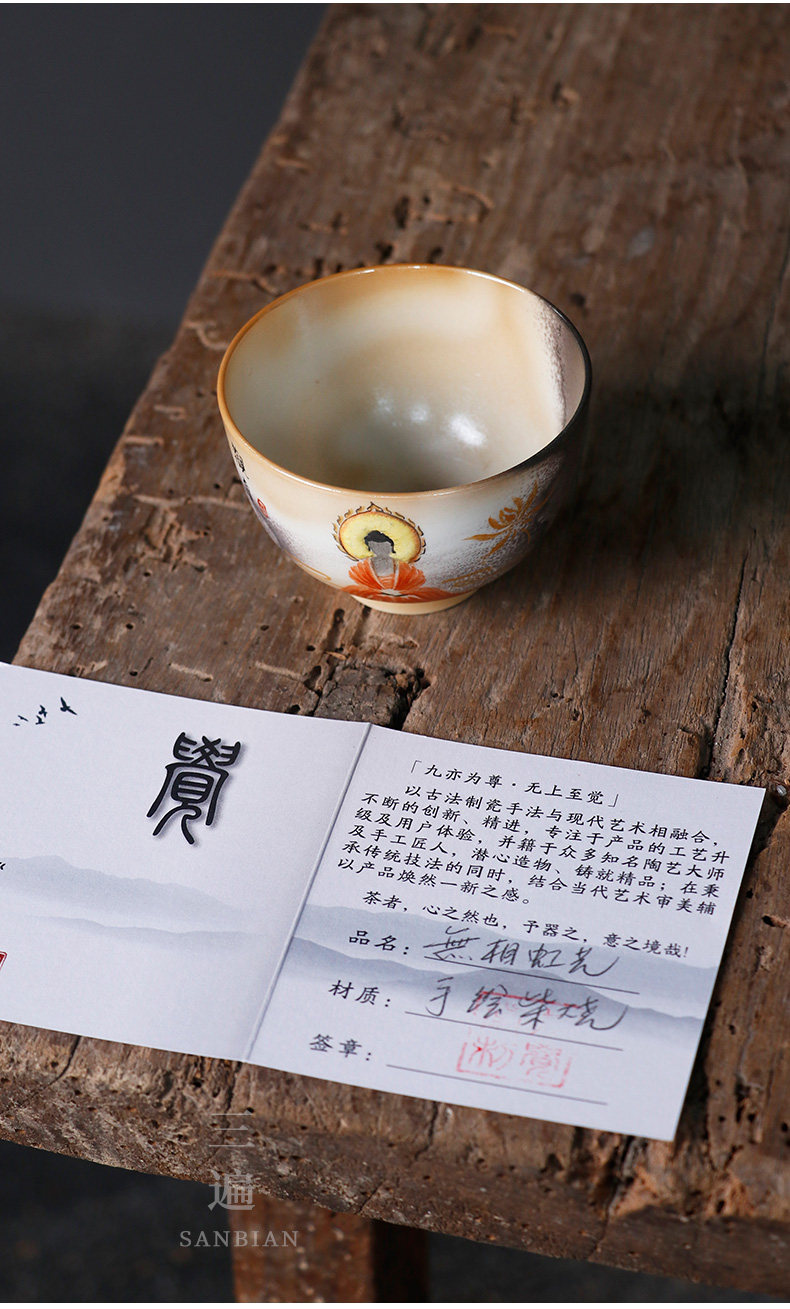 覺
「九亦为尊·无上至觉」
以古法制瓷手法与现代艺术相融合，
不断的创新、精进，专注于产品的工艺升
级及用户体验，并籍于众多知名陶艺大师
及手工匠人，潜心造物、铸就精品；在秉
承传统技法的同时，结合当代艺术审美辅
以产品焕然一新之感。
茶者，心之然也，予器之，意之境哉！
品名：無相虹光
材质：手绘柴烧
签章：
三遍
SANBIAN